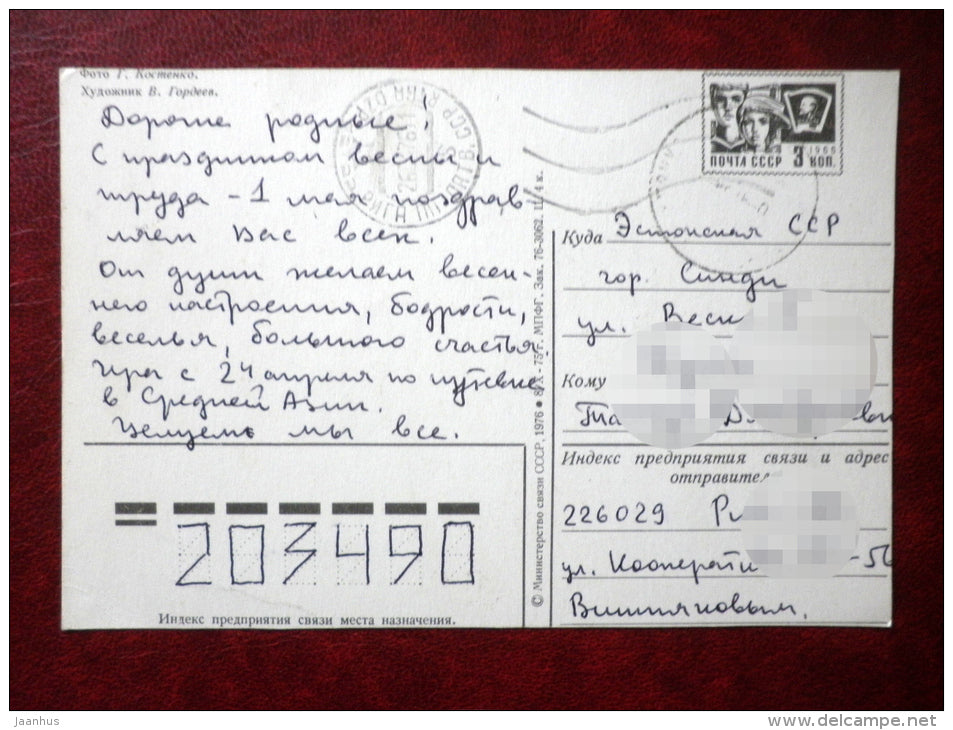 Фото Г. Костенко.
Художник В. Гордеев.
Дорогие родные!
С праздником весны и
труда - 1 мая поздрав-
ляем Вас всех.
От души желаем весен-
него настроения, бодрости,
веселья, большого счастья.
Ира с 24 апреля по путевке
в Средней Азии.
Целуем мы все.
203490
Индекс предприятия связи места назначения.
© Министерство связи СССР, 1976 • 8/IX - 75 г. МПФГ. Зак. 76-3062. Ц. 4 к.
ПОЧТА СССР 3 КОП.
1966
РИГА
Куда Эстонская ССР
гор. Синди
ул.
Кому
Индекс предприятия связи и адрес
отправителя
226029
ул.
Вишняковым.
jaanhus
www.delcampe.net